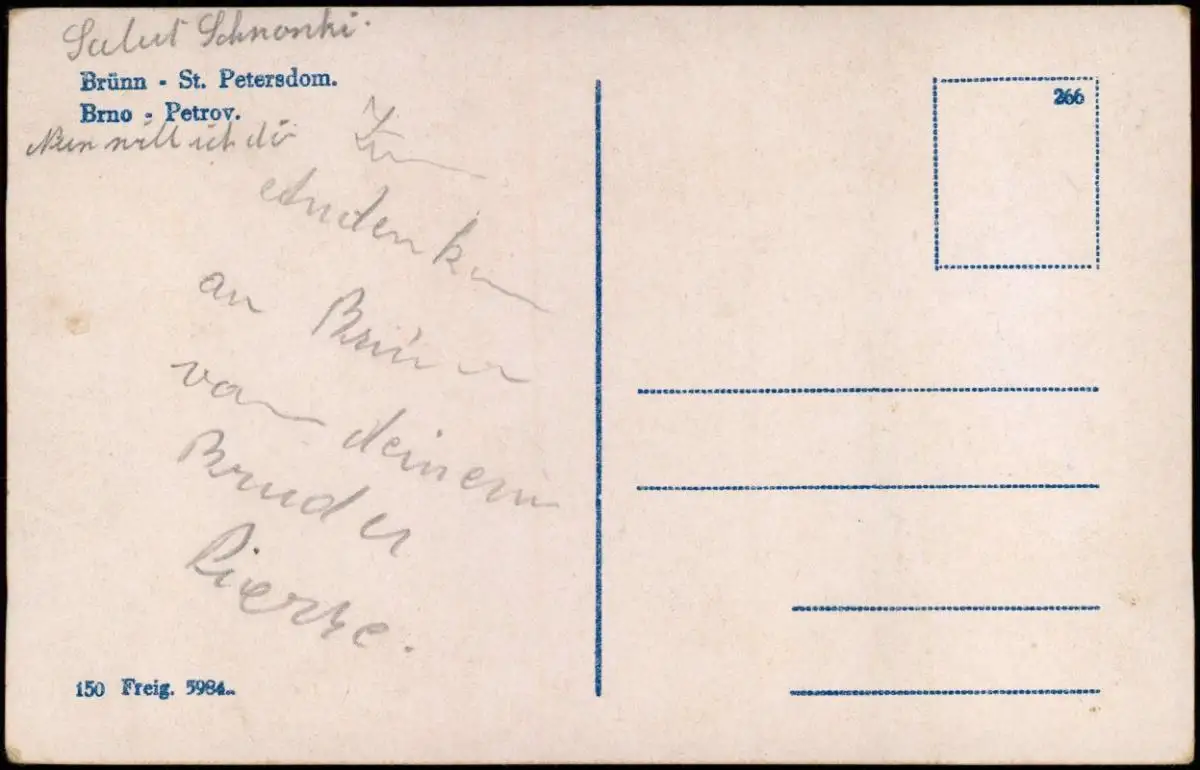 Salut Schnonki.
Brünn - St. Petersdom.
Brno - Petrov.
Nun will ich dir
Zum
Andenken
an Brünn
von deinem
Bruder
Pierre.
150 Freig. 5984
266